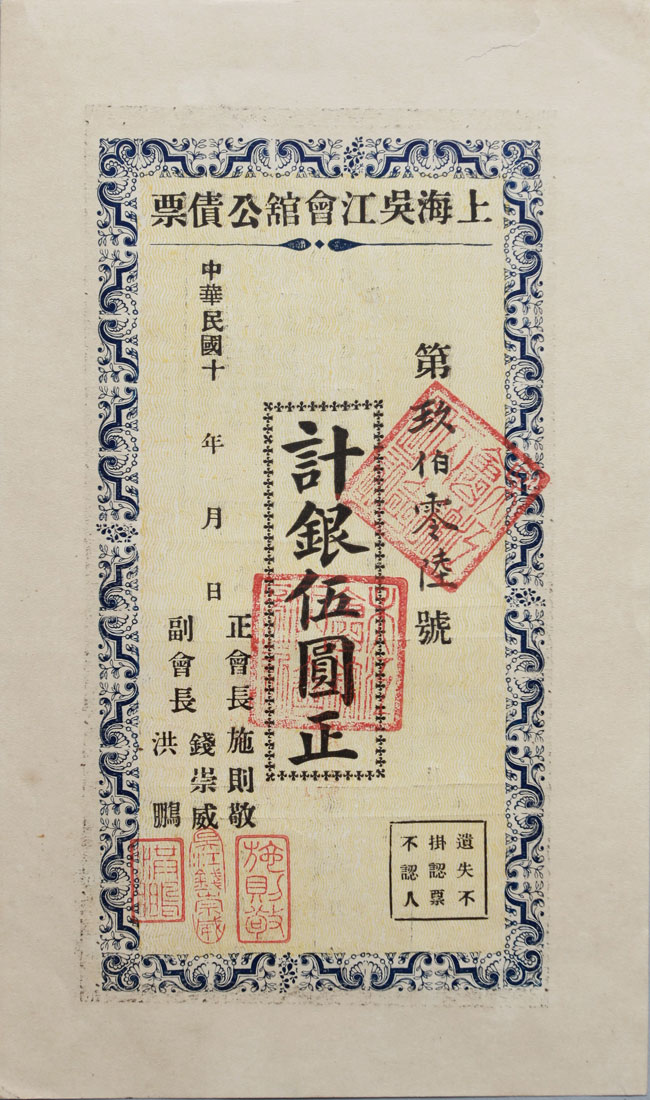 上海吳江會舘公債票
第玖伯零陸號
計銀伍圓正
中華民國十 年 月 日
正會長 施則敬
副會長 錢崇威
洪鵬
遺失不
掛認票
不認人
施則敬
吳江錢崇威
洪鵬